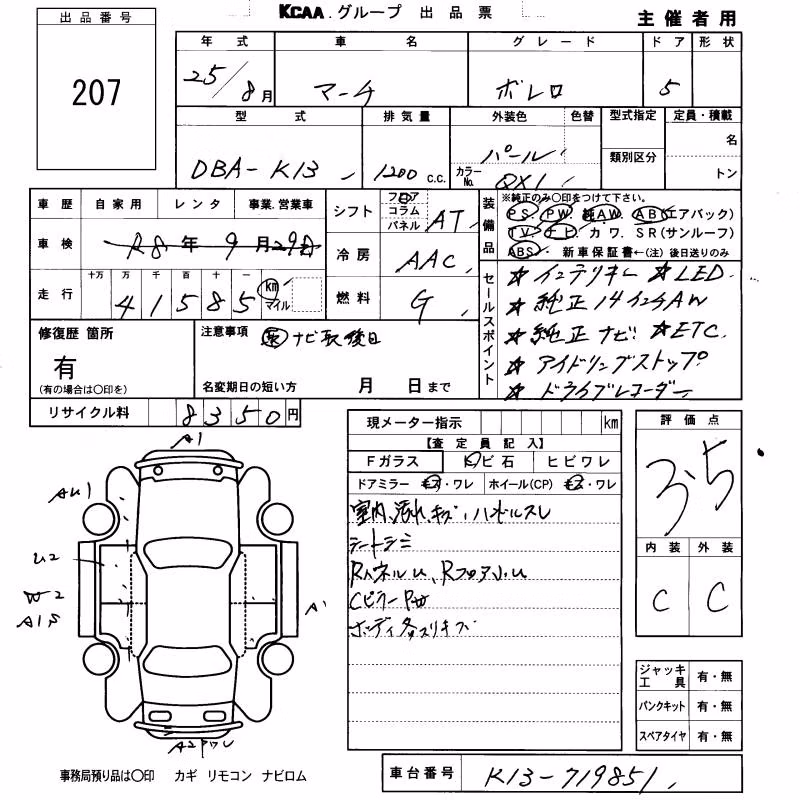 出品番号
207
KCAA.グループ 出品票
主催者用
年式 車名 グレード ドア 形状
25/8月 マーチ ボレロ 5
型式 排気量 外装色 色替 型式指定 定員・積載
類別区分
名
トン
DBA-K13 1200 c.c. パール
カラーNo. QX1
車歴 自家用 レンタ 事業.営業車
シフト フロア コラム パネル AT
装備品
※純正のみ〇印をつけて下さい。
PS. PW. 純AW. AB(エアバック)
TV. ナビ. カワ. SR(サンルーフ)
ABS. 新車保証書←(注) 後日送りのみ
車検 R8年9月29日
冷房 AAC
走行 十万 万 千 百 十 一
41585 km マイル
燃料 G
セールスポイント
☆ インテリキー ☆ LED
☆ 純正14インチAW
☆ 純正ナビ ☆ETC
☆ アイドリングストップ
☆ ドライブレコーダー
修復歴 箇所
有
(有の場合は〇印を)
注意事項
ナビ取後日
名変期日の短い方 月 日まで
リサイクル料 8350円
現メーター指示 km
【査定員記入】
Fガラス トビ石 ヒビワレ
ドアミラー キズ・ワレ ホイール(CP) キズ・ワレ
室内汚れ、キズ、ハンドルスレ
シートシミ
RパネルU、RフロアU
Cピラー
ボディ各スリキズ
評価点
3.5
内装 外装
C C
A1
AU1
U2
W2
A15
A1
ジャッキ工具 有・無
パンクキット 有・無
スペアタイヤ 有・無
車台番号 K13-719851
事務局預り品は〇印 カギ リモコン ナビロム